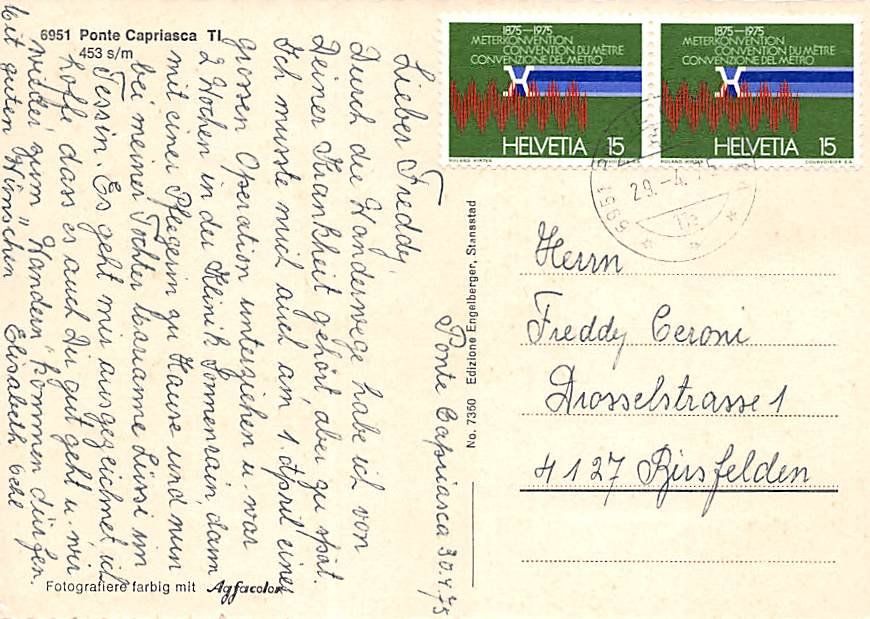 6951 Ponte Capriasca TI
453 s/m
Ponte Capriasca 30.4.75
Lieber Freddy,
Durch die Wanderwege habe ich von
Deiner Krankheit gehört aber zu spät.
Ich musste mich auch am 1. April einer
grossen Operation unterziehen u. war
2 Wochen in der Klinik Sonnenrain, dann
mit einer Pflegerin zu Hause und nun
bei meiner Tochter Marianne Lüssi im
Tessin. Es geht mir ausgezeichnet, ich
hoffe dass es auch Dir gut geht u. wir
wieder zum "Wandern" kommen dürfen.
Mit guten Wünschen Elisabeth
Fotografiere farbig mit Agfacolor
No. 7350 Edizione Engelberger, Stansstad
1875-1975
METERKONVENTION
CONVENTION DU MÈTRE
CONVENZIONE DEL METRO
HELVETIA 15
ROLAND HIRTER
1875-1975
METERKONVENTION
CONVENTION DU MÈTRE
CONVENZIONE DEL METRO
HELVETIA 15
ROLAND HIRTER COURVOISIER S.A.
29.-4.75
6951
Herrn
Freddy Ceroni
Drosselstrasse 1
4127 Birsfelden